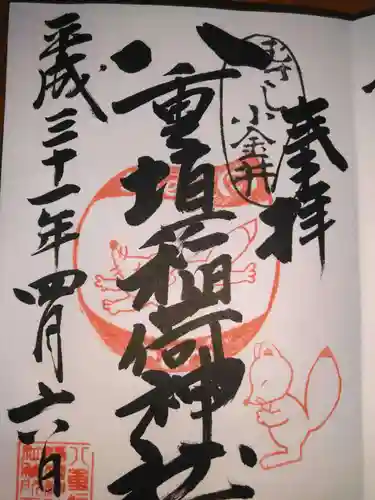 奉拝
むさし
小金井
八重垣稲荷神社
平成三十一年四月六日